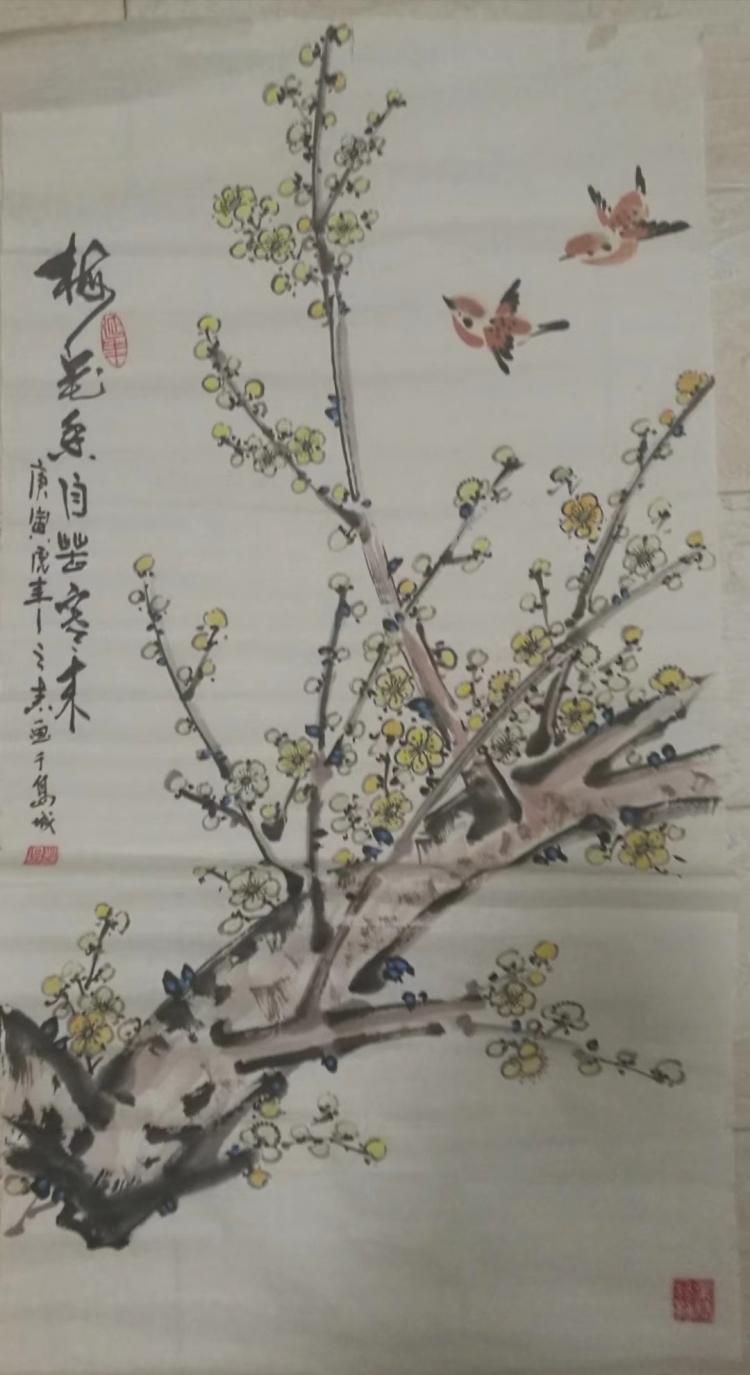 梅花香自苦寒来
庚寅虎年 之志画于岛城
延年